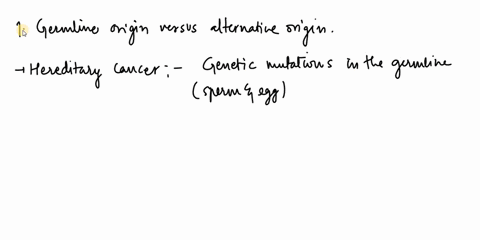 1. Germline origin versus alternative origin.
→ Hereditary cancer :- Genetic mutations in the germline
(sperm & egg)